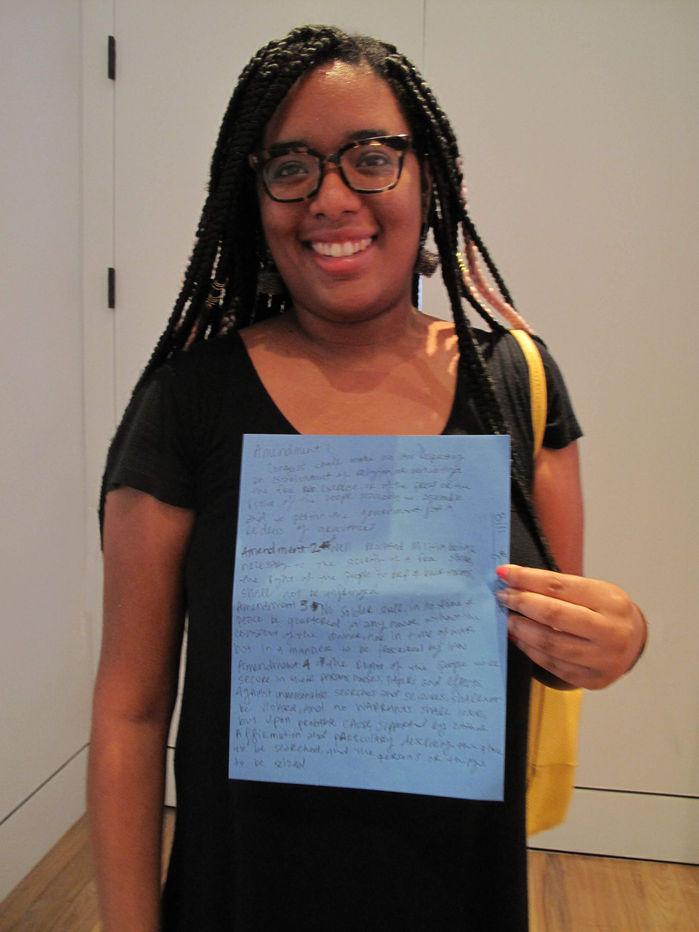 Amendment 1
Congress shall make no law respecting
an establishment of religion or
the free exercise of the
of the people
and to petition the government for a
redress of grievances
Amendment 2 Well Regulated Militia being
necessary to the security of a free state
the right of the people to keep & bear arms
shall not be infringed
Amendment 3 No soldier shall, in time of
peace be quartered in any house without the
consent of the owner nor in time of war
but in a manner to be prescribed by law
Amendment 4 The Right of the people to be
secure in their persons, houses, papers and effects
Against unreasonable searches and seizures, shall not
be violated, and no WARRANTS shall issue,
but upon probable cause, supported by
Affirmation and particularly describing the place
to be searched, and the persons or things
to be seized
Bill